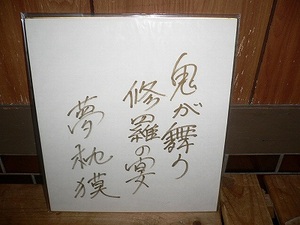 鬼が舞り
修羅の宴
夢枕獏